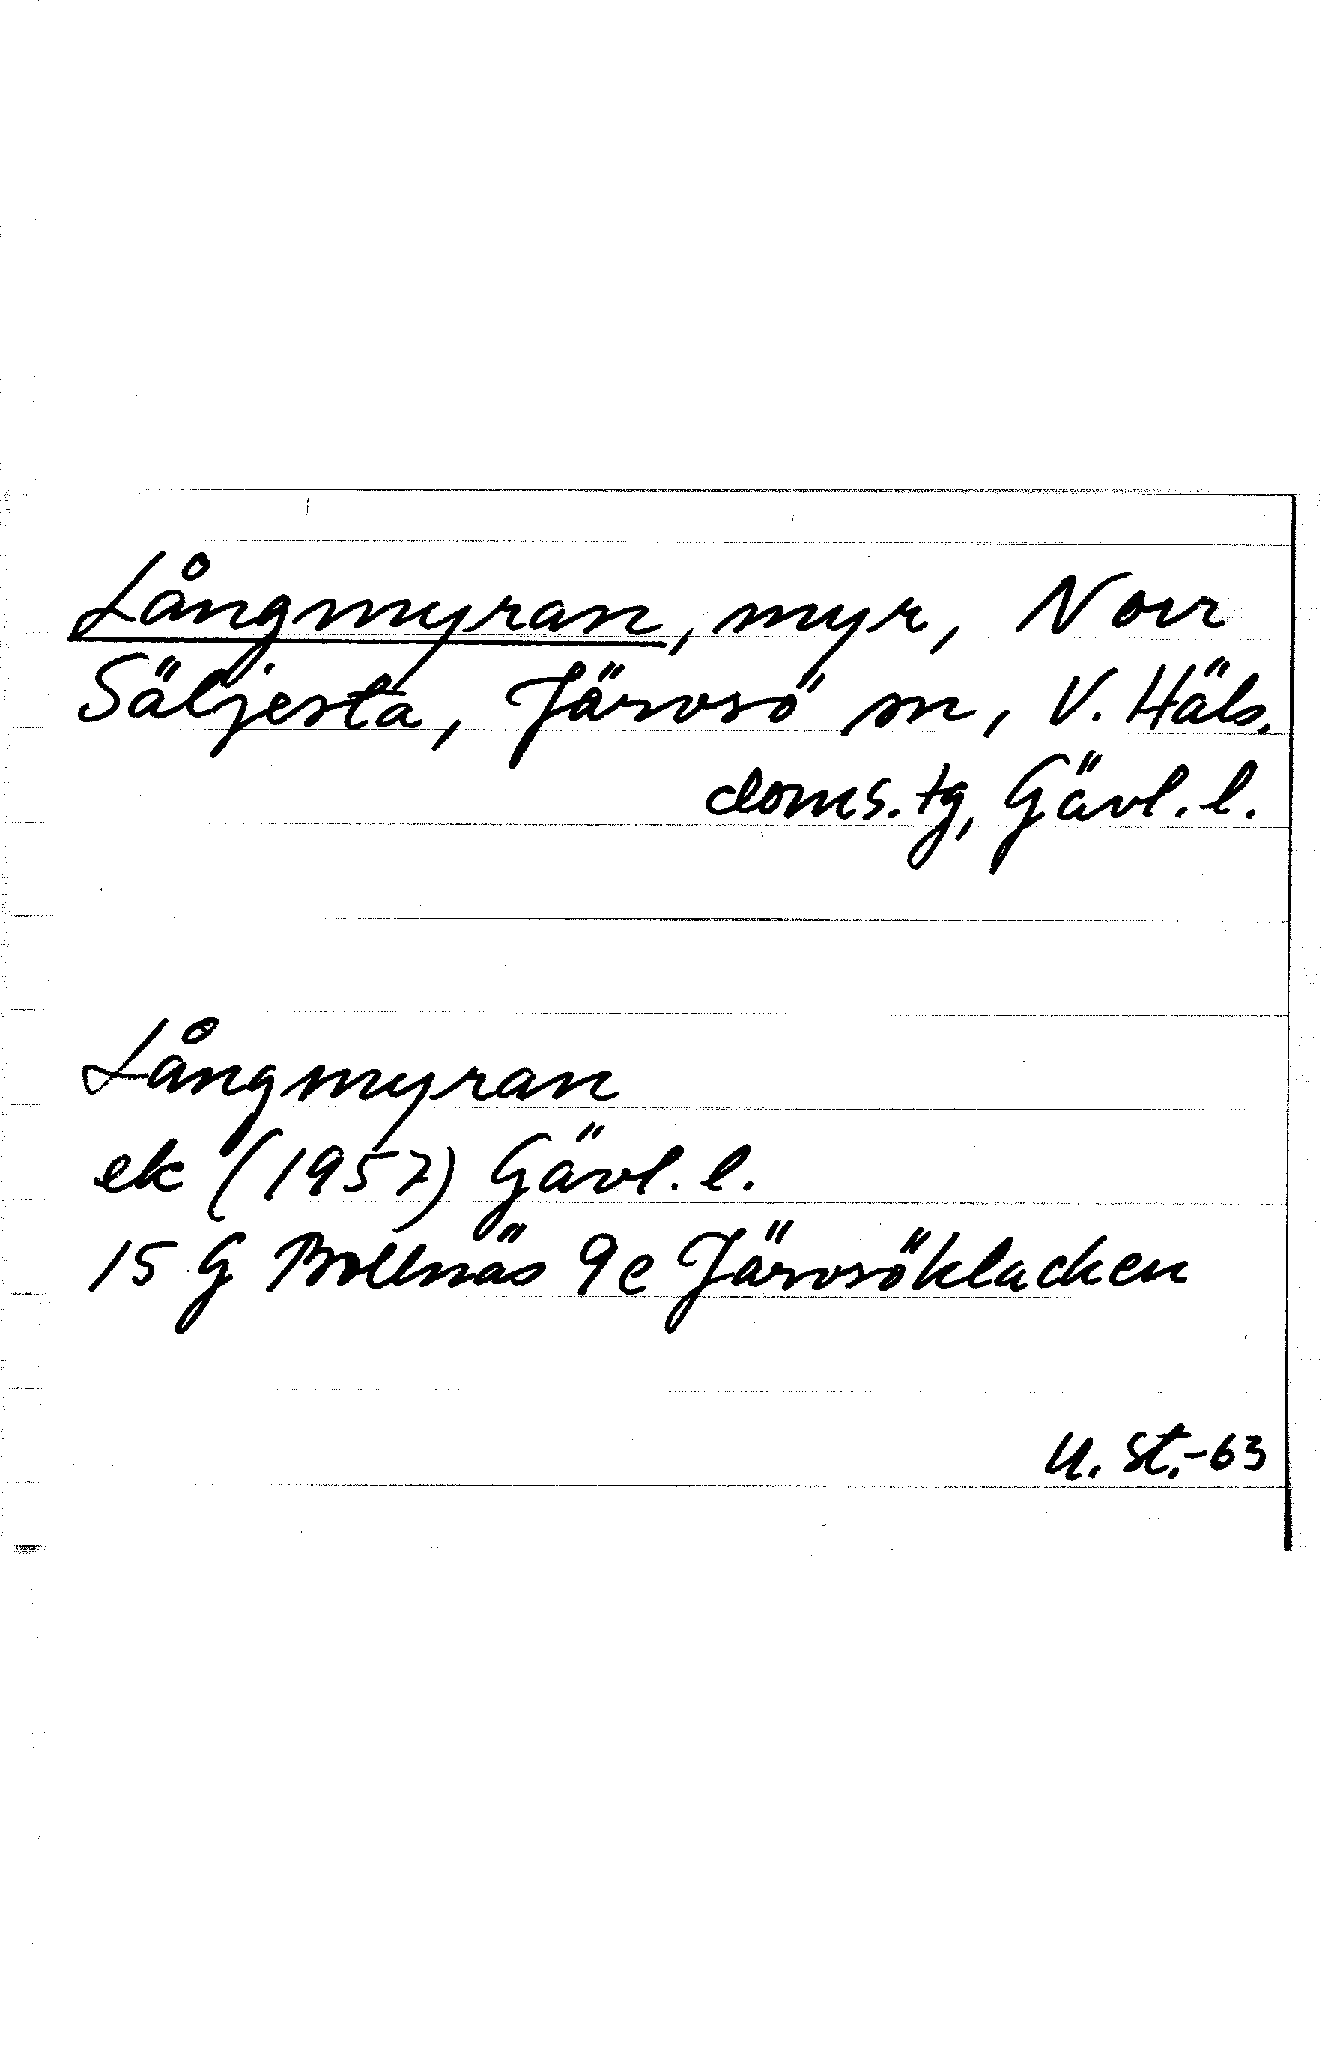 Långmyran, myr, Norr
Säljesta, Järvsö sn, V. Häls.
doms.tg, Gävl. l.
Långmyran
ek (1957) Gävl. l.
15 G Bollnäs 9e Järvsöklacken
U. St.-63